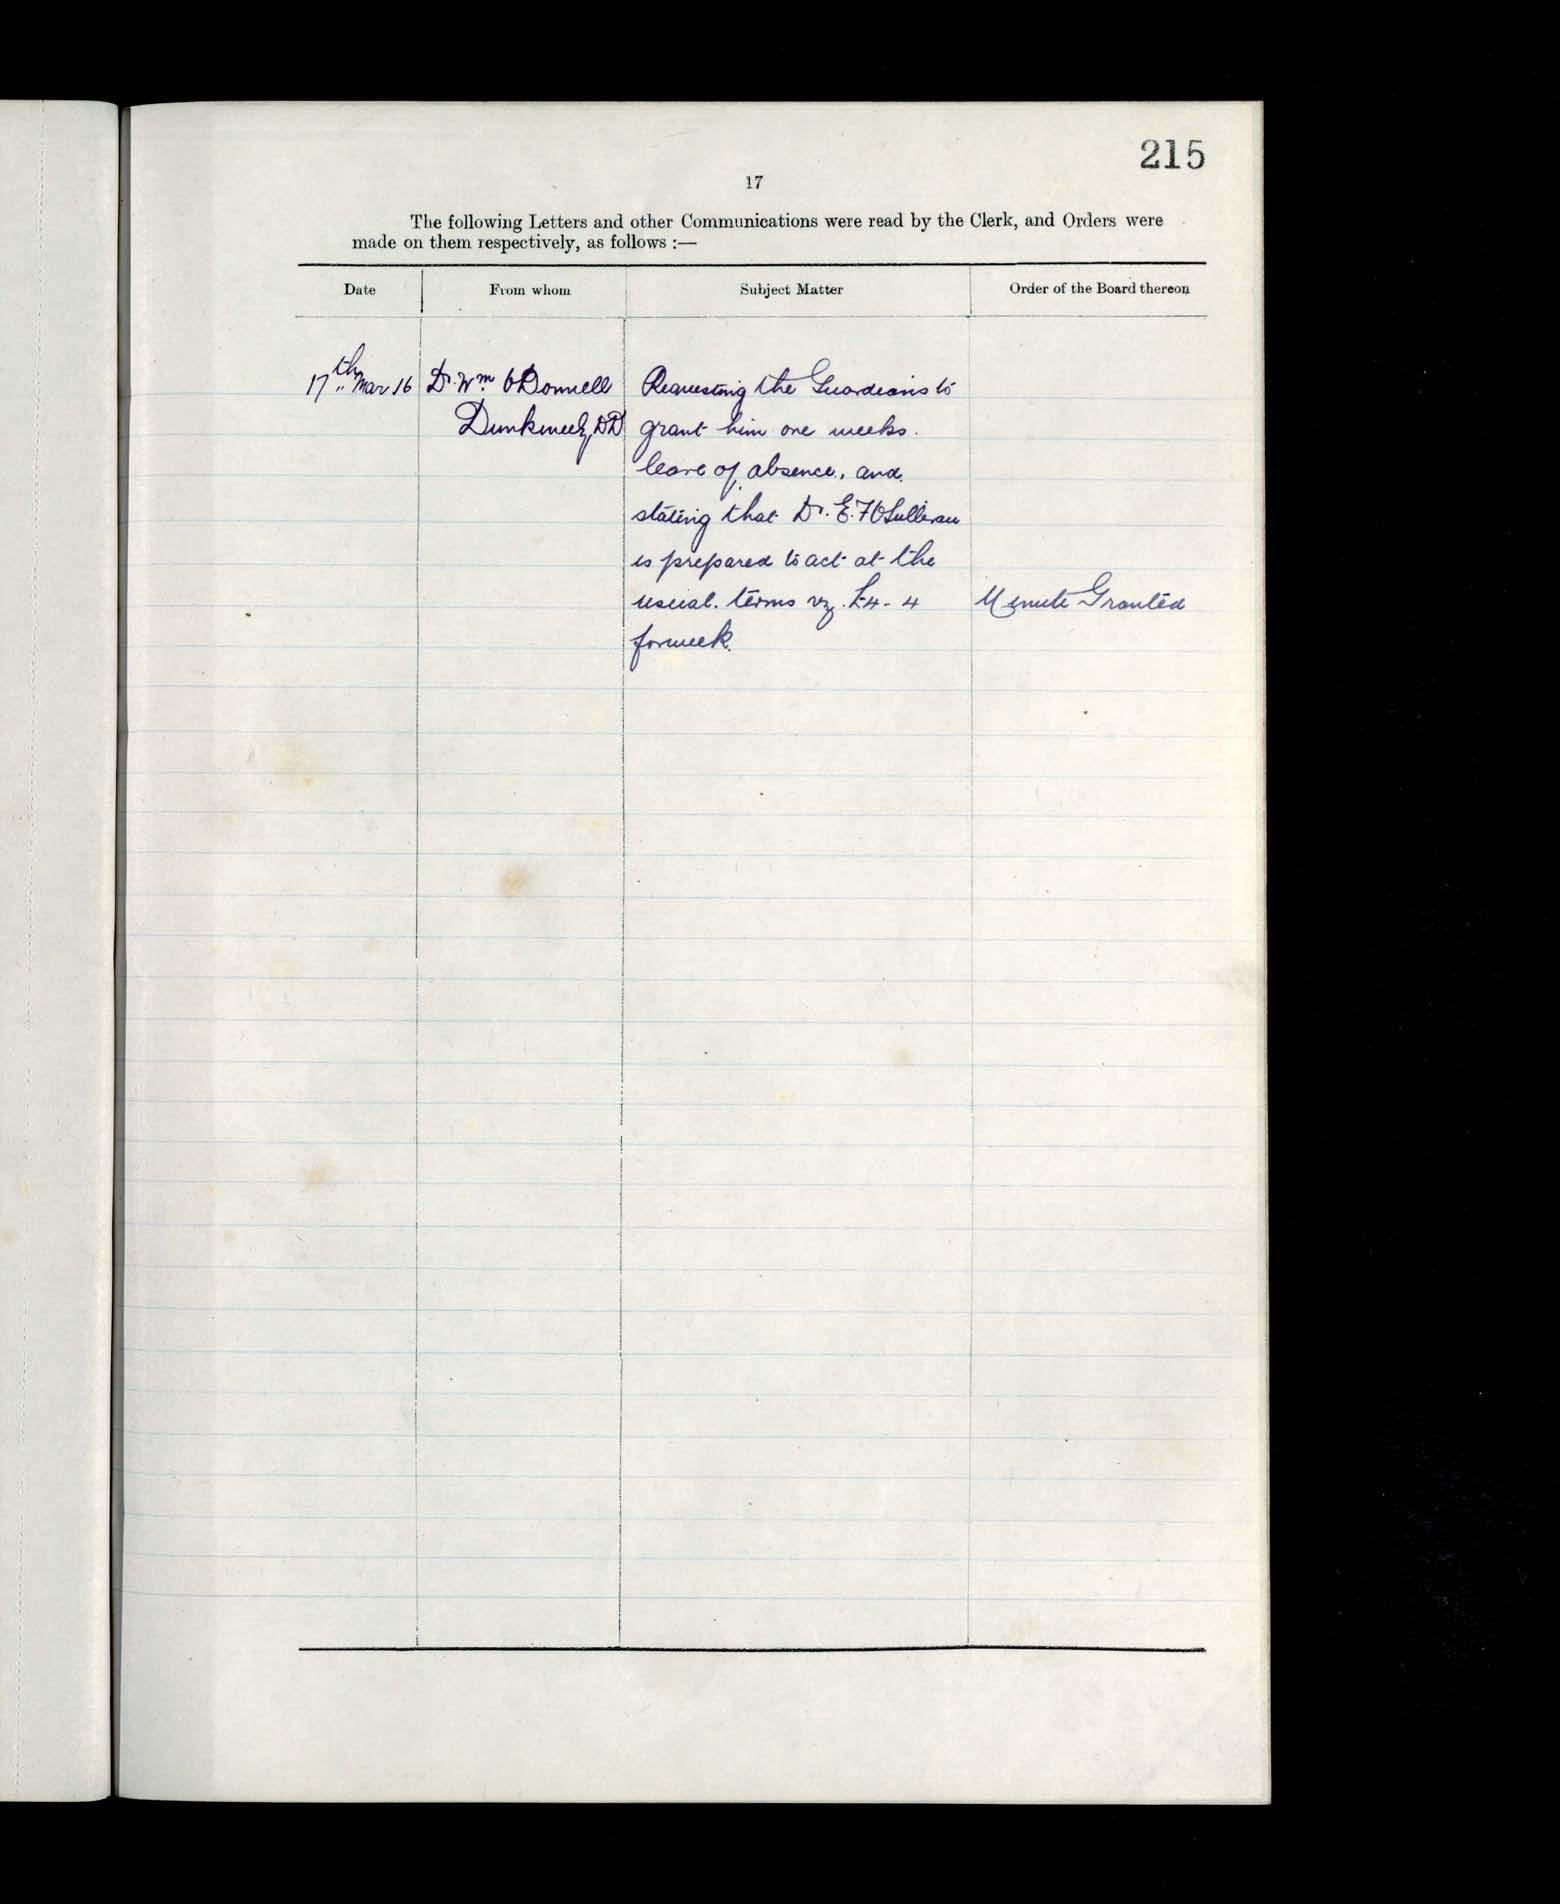 215
17
The following Letters and other Communications were read by the Clerk, and Orders were
made on them respectively, as follows :—
Date From whom Subject Matter Order of the Board thereon
17th Mar 16 Dr. Wm O'Donnell Requesting the Guardians to
Dunkineely DD grant him one weeks.
leave of absence, and
stating that Dr. E. F O'Sullivan
is prepared to act at the
usual. terms viz. £4-4 Minute Granted
for week.